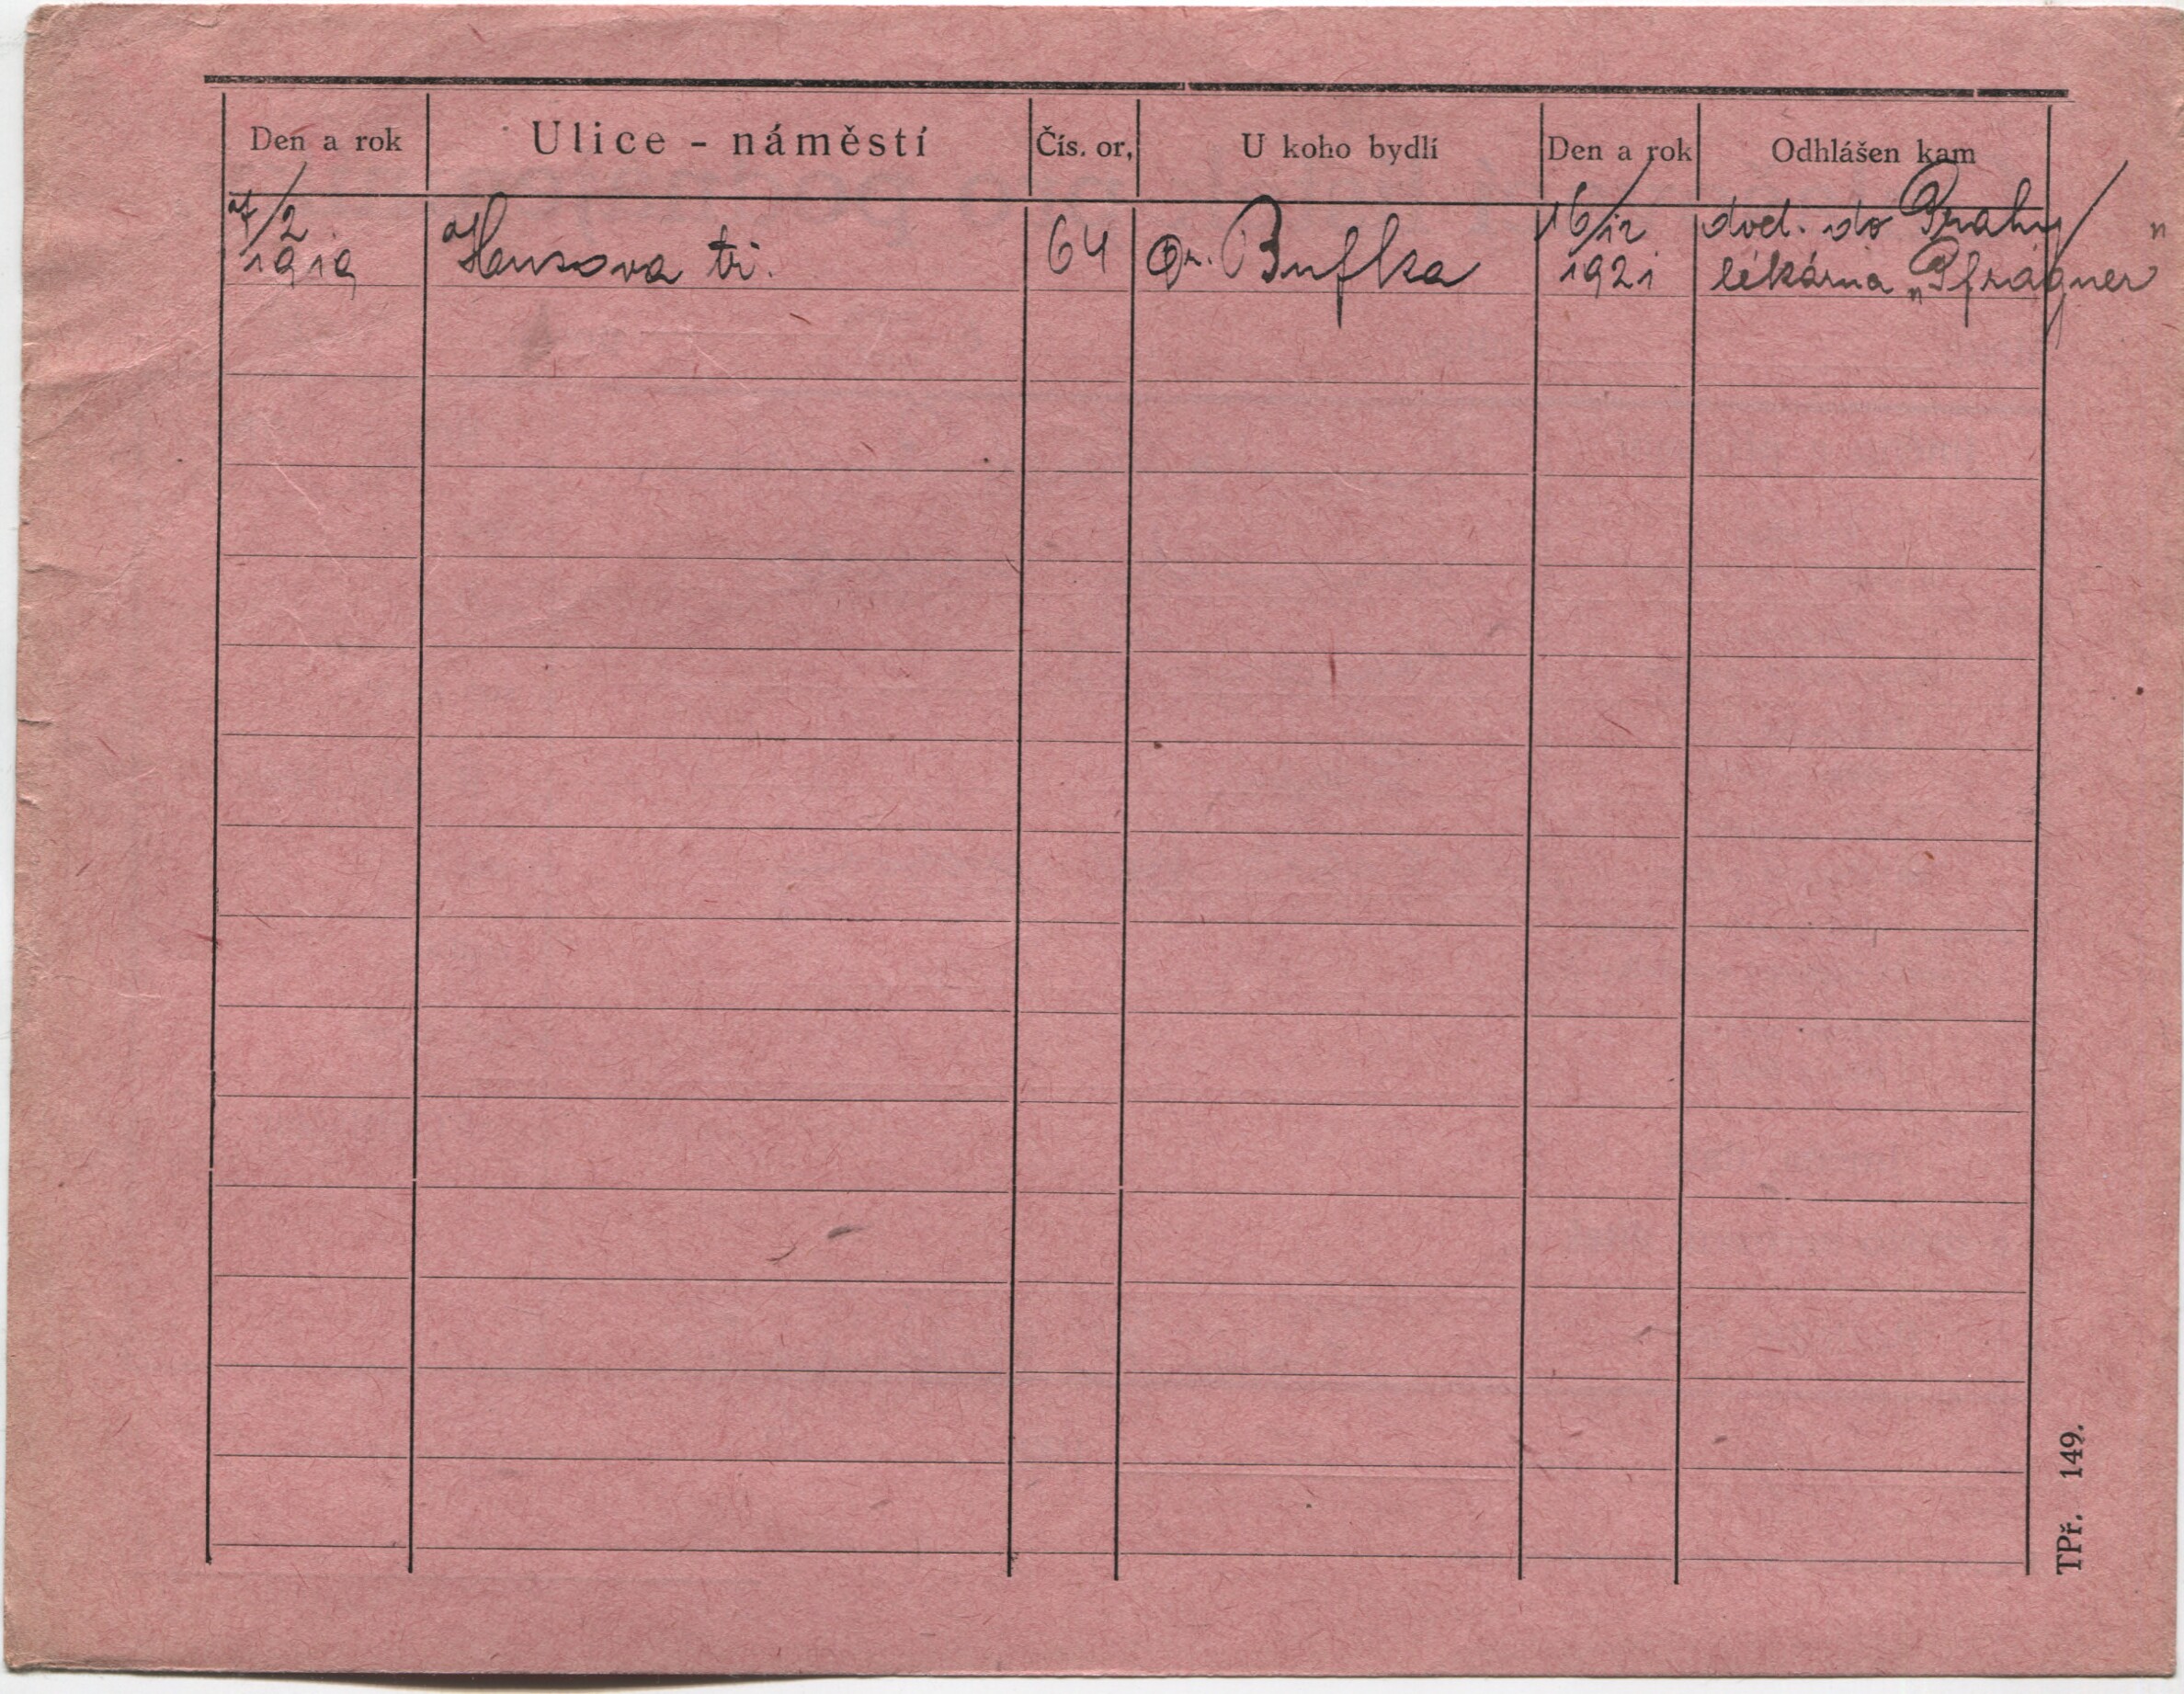 Den a rok Ulice - náměstí Čís. or, U koho bydlí Den a rok Odhlášen kam
/2 Husova tř. 64 Dr. Bufka 16/12 do Prahy
1919 1921 lékárna „Pfragner"
TPř. 149.